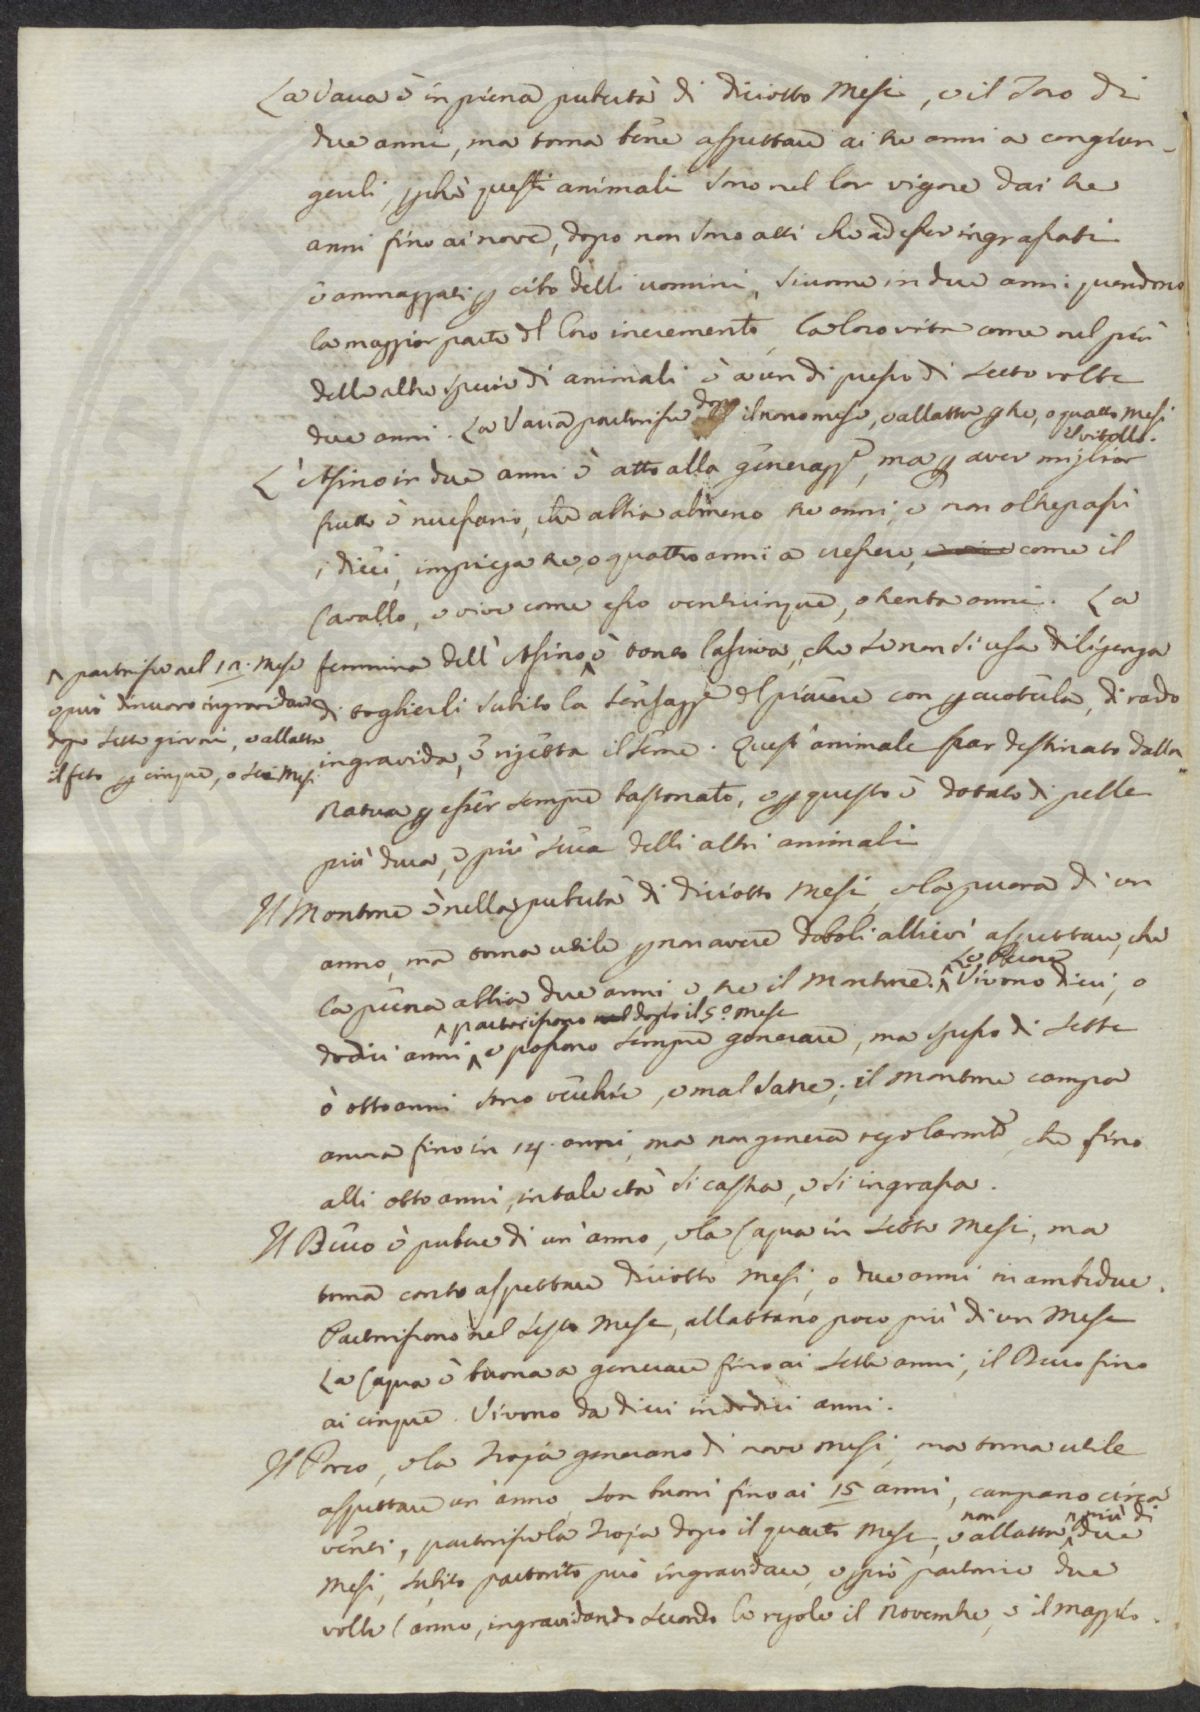 La Vacca è in piena pubertà di diciotto mesi, e il Toro di
due anni, ma torna bene aspettare ai tre anni a congiun-
gerli, pchè questi animali sono nel lor vigore dai tre
anni fino ai nove, dopo non sono atti che ad esser ingrassati
e ammazzati p cibo delli uomini, siccome in due anni prendono
la maggior parte del loro incremento, la loro vita come nel più
delle altre specie di animali è a un di presso di sette volte
due anni. La Vacca partorisce dopo il nono mese, e allatta p tre, o quattro mesi
il vitello.
L'Asino in due anni è atto alla generazze, ma p aver miglior
frutto è necessario, che abbia almeno tre anni, e non oltrepassi
i dieci, impiega tre, o quattro anni a crescere, come il
Cavallo, e vive come esso venticinque, o trenta anni. La
femmina dell'Asino ^ è tanto lasciva, che se non si usa diligenza
^ partorisce nel 12. mese
e può di nuovo ingravidare
dopo sette giorni, e allatta
il feto p cinque, o sei mesi
di toglierli subito la sensazze del piacere con pcuoterla, di rado
ingravida, e rigetta il seme. Quest'animale par destinato dalla
natura p esser sempre bastonato, e p questo è dotato di pelle
più dura, e più secca delli altri animali
Il Montone è nella pubertà di diciotto mesi, e la pecora di un
anno, ma torna utile p non avere deboli allievi aspettare, che
la pecora abbia due anni e tre il montone. ^ Le Pecore Vivono dieci, o
dodici anni ^ partoriscono dopo il 5.o mese e possono sempre generare, ma spesso di sette
o otto anni sono vecchie, e mal sane; il montone campa
ancora fino in 14. anni, ma non genera regolarmte, che fino
alli otto anni, in tale età si castra, e si ingrassa.
Il Becco è pubere di un'anno, e la Capra in sette mesi, ma
torna conto aspettare diciotto mesi, o due anni in ambidue.
Partoriscono nel sesto mese, allattano poco più di un mese
La Capra è buona a generare fino ai sette anni, il Becco fino
ai cinque. Vivono da dieci in dodici anni.
Il Porco, e la Troja generano di nove mesi, ma torna utile
aspettare un'anno, son buoni fino ai 15 anni, campano circa
venti, partorisce la Troja dopo il quarto mese, e non allatta ^ più di due
mesi, subito partorito può ingravidare, e può partorire due
volte l'anno, ingravidando secondo le regole il novembre, e il maggio.